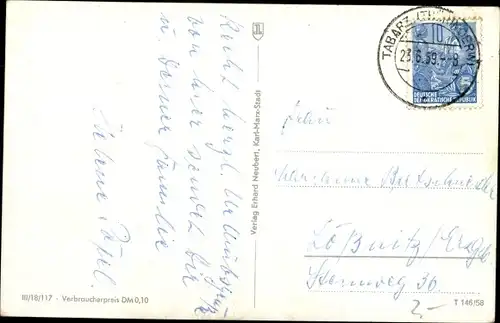 Recht herzl. Urlaubsgrüße
von hier sendet Dir
u. Deiner Familie
Verlag Erhard Neubert, Karl-Marx-Stadt
III/18/117 · Verbraucherpreis DM 0,10
TABARZ (THÜR WALD)
23.6.59.-8
10
DEUTSCHE
DEMOKRATISCHE REPUBLIK
Frau
Lößnitz/Erzgb
Sternweg 36
2,-
T 146/58